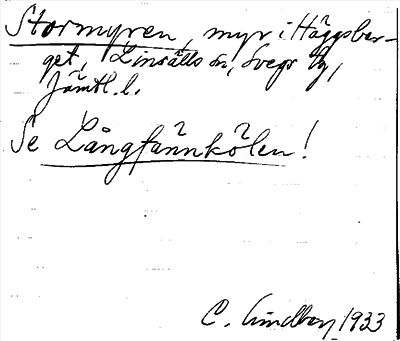 Stormyren, myr i Häggsber-
get, Linsälls sn, Svegs tg,
Jämtl. l.
Se Långfännkölen!
C. Lindberg 1933